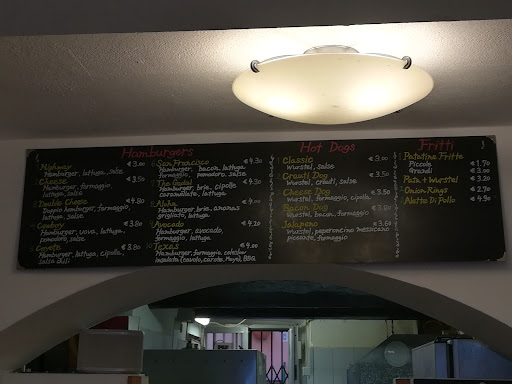 Hamburgers
1 Highway € 3.00
Hamburger, lattuga, salse
2 Cheese € 3.50
Hamburger, formaggio
lattuga, salse
3 Double Cheese € 4.80
Doppio hamburger, formaggio,
lattuga, salse
4 Cowboy € 3.80
Hamburger, uova, lattuga,
pomodoro, salse
5 Coyote € 3.80
Hamburger, lattuga, cipolla,
salsa chili
6 San Francisco € 4.30
Hamburger, bacon, lattuga
formaggio, pomodoro, salse
€ 4.30
Hamburger brie, cipolla
caramellata, lattuga
8 Aloha € 4.50
Hamburger brie, ananas
grigliato, lattuga
9 Avocado € 4.20
Hamburger, avocado,
formaggio, lattuga
10 Texas € 4.00
Hamburger, formaggio, coleslaw
insalata (cavolo, carote, Mayo), BBQ
Hot Dogs
Classic € 3.00
Wurstel, salse
Crauti Dog € 3.50
Wurstel, crauti, salse
Cheese Dog € 3.50
Wurstel, formaggio, cipolla
Bacon Dog
Wurstel, bacon, formaggio
Jalapeno € 3.50
Wurstel, peperoncino messicano
piccante, formaggio
Fritti
Patatine Fritte
Piccole € 1.70
Grandi € 3.00
Pata + Wurstel € 3.20
Onion Rings € 2.70
Alette Di Pollo € 4.90